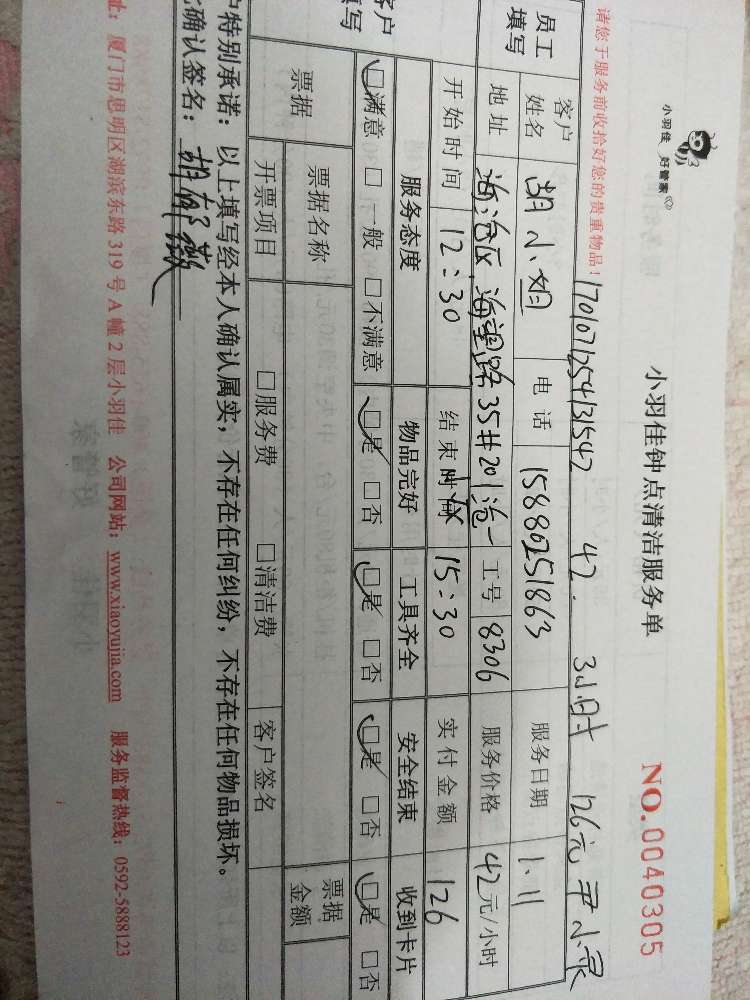 小羽佳 好管家
小羽佳钟点清洁服务单
NO.0040305
请您于服务前收拾好您的贵重物品!
1701071254131542 42. 3小时 126元 尹小灵
员工填写
客户姓名 胡小姐 电话 15880251863 服务日期 1.11
地址 海沧区海望路35#201沧一 工号 8306 服务价格 42元/小时
开始时间 12:30 结束时间 15:30 实付金额 126
客户填写
服务态度 物品完好 工具齐全 安全结束 收到卡片
□满意 □一般 □不满意 □是 □否 □是 □否 □是 □否 □是 □否
票据 票据名称 票据金额
开票项目 □服务费 □清洁费 客户签名
户特别承诺:以上填写经本人确认属实,不存在任何纠纷,不存在任何物品损坏。
确认签名:
址:厦门市思明区湖滨东路319号A幢2层小羽佳 公司网站:www.xiaoyujia.com 服务监督热线:0592-5888123